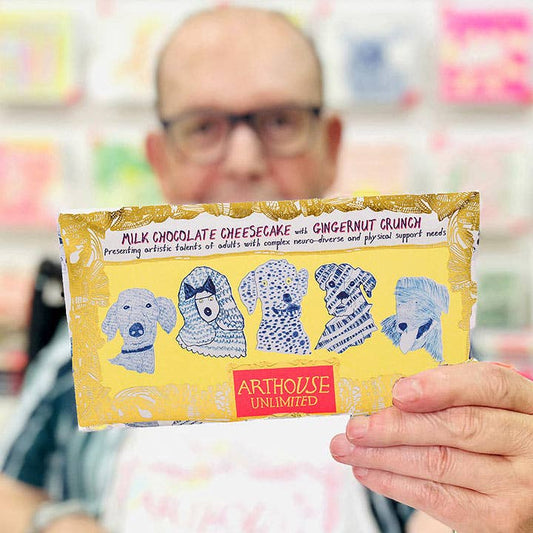 MILK CHOCOLATE CHEESECAKE with GINGERNUT CRUNCH
Presenting artistic talents of adults with complex neuro-diverse and physical support needs
ARTHOUSE
UNLIMITED